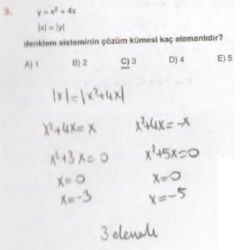 3. y = x² + 4x
|x| = |y|
denklem sisteminin çözüm kümesi kaç elemanlıdır?
A) 1 B) 2 C) 3 D) 4 E) 5
|x| = |x²+4x|
x²+4x = x x²+4x = -x
x²+3x = 0 x²+5x=0
x=0 x=0
x=-3 x=-5
3 elemanlı